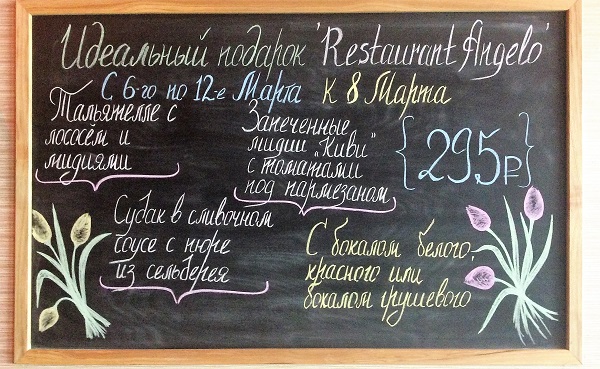 Идеальный подарок 'Restaurant Angelo'
С 6-го по 12-е Марта к 8 Марта
Тальятелле с
лососем и
мидиями
Запеченные
мидии „Киви"
с томатами
под пармезаном
{295₽}
Судак в сливочном
соусе с пюре
из сельдерея
С бокалом белого,
красного или
бокалом грушевого